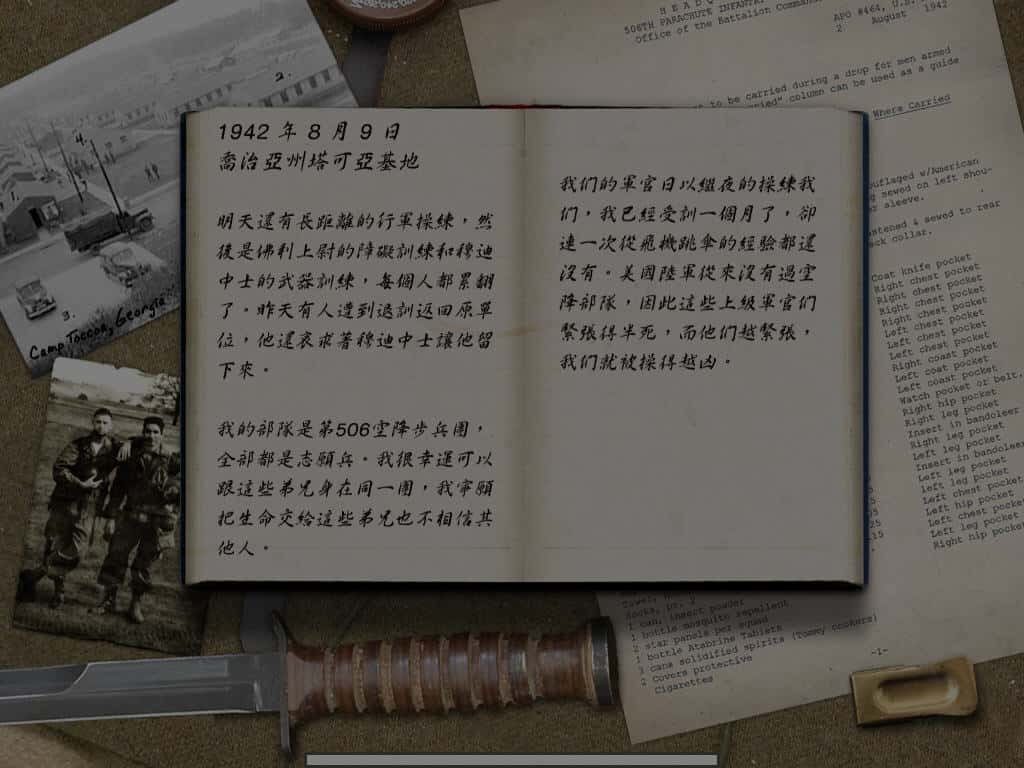 1942 年 8 月 9 日
喬治亞州塔可亞基地
明天還有長距離的行軍操練，然
後是佛利上尉的障礙訓練和穆迪
中士的武器訓練，每個人都累翻
了。昨天有人遭到退訓返回原單
位，他還哀求著穆迪中士讓他留
下來。
我的部隊是第506空降步兵團，
全部都是志願兵。我很幸運可以
跟這些弟兄身在同一團，我寧願
把生命交給這些弟兄也不相信其
他人。
我们的軍官日以繼夜的操練我
们，我已經受訓一個月了，卻
連一次從飛機跳傘的經驗都還
沒有。美國陸軍從來沒有過空
降部隊，因此這些上級軍官们
緊張得半死，而他们越緊張，
我们就被操得越凶。
2.
4.
3.
Camp Toccoa, Georgia
506TH PARACHUTE INFANTRY
Office of the Battalion Comma
APO #464, U.S.
2 August 1942
to be carried during a drop for men armed
ried" column can be used as a guide
Where Carried
ouflaged w/American
g sewed on left shou-
er sleeve.
astened & sewed to rear
ack collar.
Coat knife pocket
Right chest pocket
Right chest pocket
Right chest pocket
Left chest pocket
Left chest pocket
Right coast pocket
Left coat pocket
Left coast pocket
Watch pocket or belt.
Right hip pocket
Right leg pocket
Insert in bandoleer
Right leg pocket
Insert in bandoleer
Left leg pocket
left leg pocket
Left chest pocket
Left hip pocket
Left chest pocket
Left leg pocket
Right hip pocket
Towel,
Socks, pr. 2
1 can, insect powder
1 bottle mosquito repellent
2 star panels per squad
1 bottle Atabrine Tablets
3 cans solidified spirits (Tommy cookers)
2 Covers protective
Cigarettes
-1-